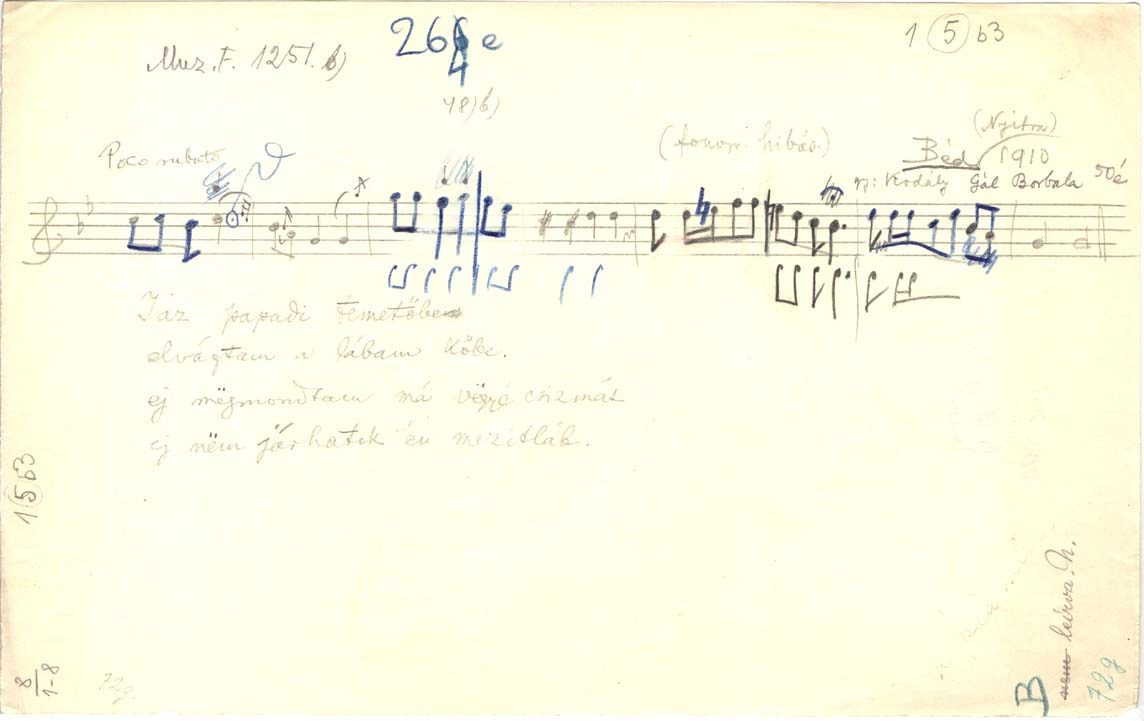 Muz. F. 1251. b)
264 e
1 (5) b3
48) b)
Poco rubato
(fonogr. hibás.)
(Nyitra)
Béd 1910
gy: Kodály Gál Borbala 50é
I az papadi temetőbe
elvágtam a lábam kőbe.
ej mëgmondtam má végyé csizmát
ej nëm járhatok én mezitláb.
1 (5) b3
8
1-8
72g.
B
nem leírva. M.
72g